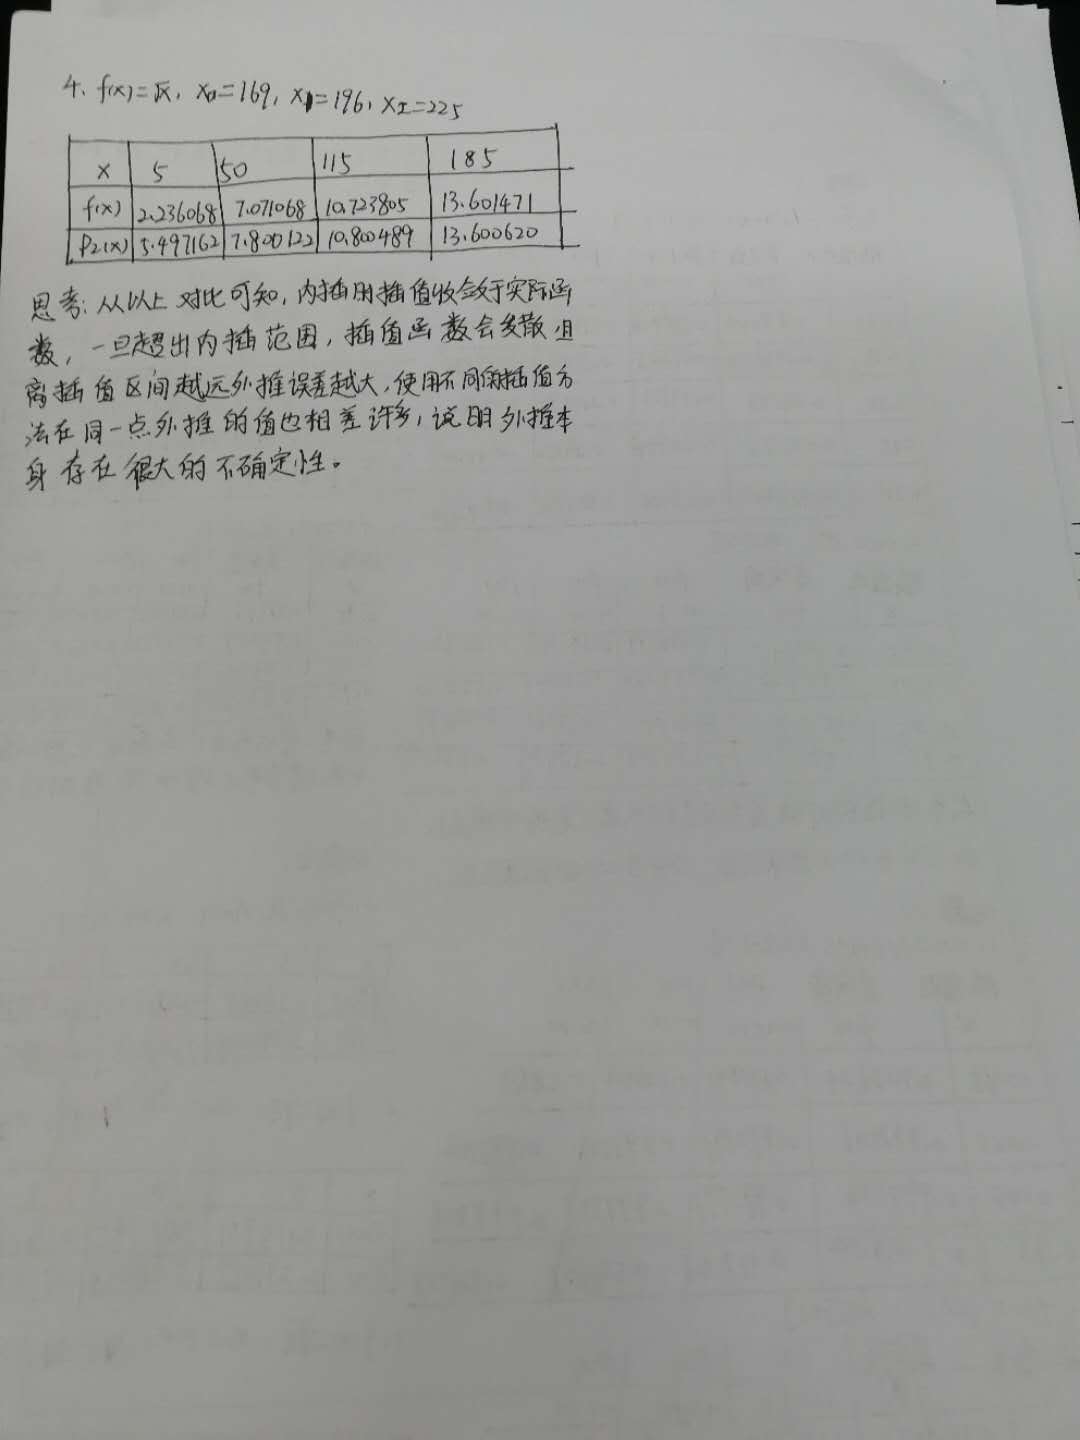 4、f(x)=√x, x0=169, x1=196, x2=225
x 5 50 115 185
f(x) 2.236068 7.071068 10.723805 13.601471
P2(x) 5.497162 7.800122 10.800489 13.600620
思考: 从以上对比可知, 内插用插值收敛于实际函
数, 一旦超出内插范围, 插值函数会发散, 且
离插值区间越远外推误差越大, 使用不同的插值方
法在同一点外推的值也相差许多, 说明外推本
身存在很大的不确定性。